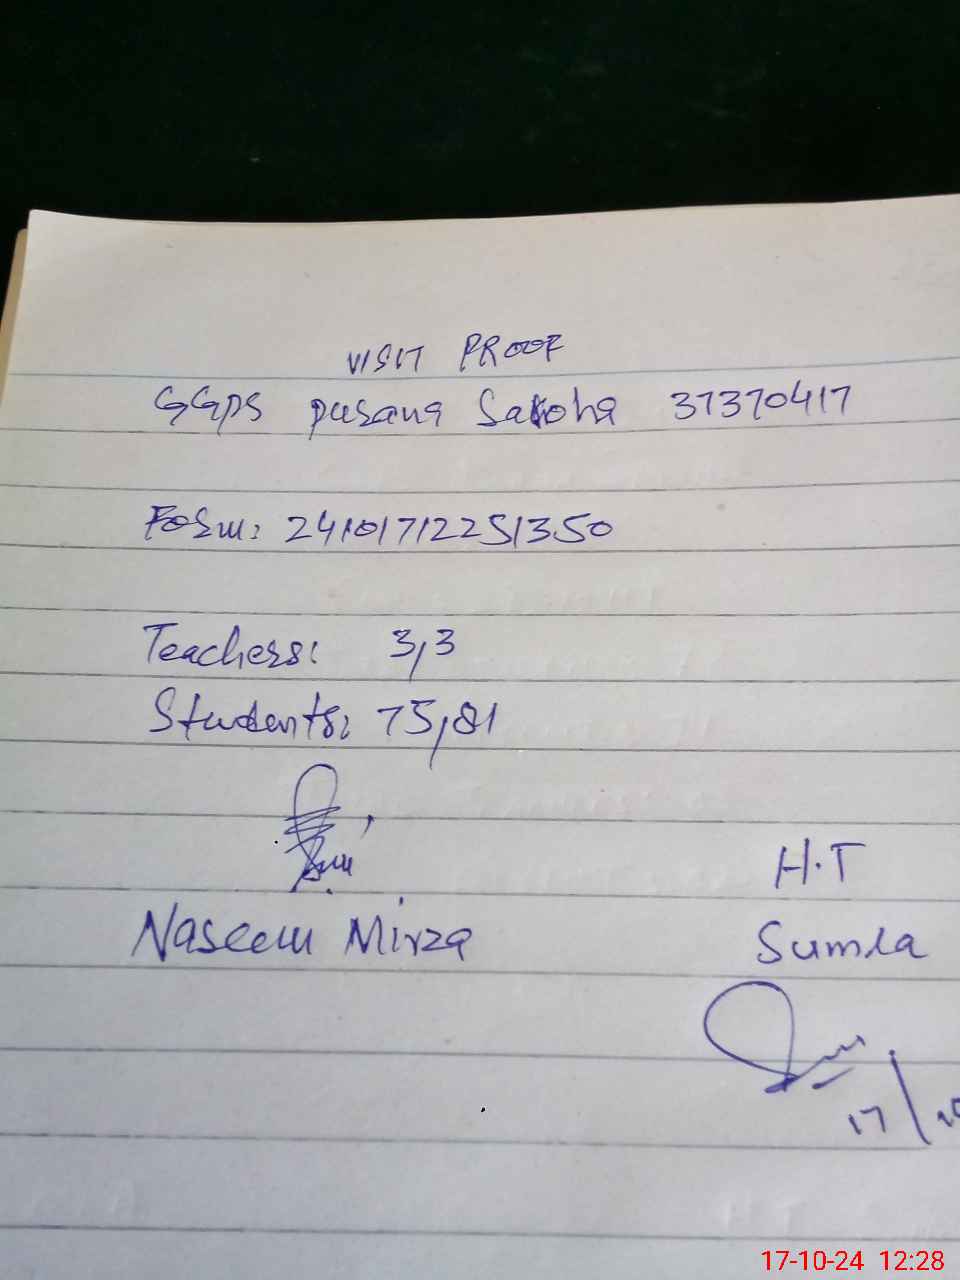 VISIT PROOF
GGPS pusana Sakoha 37370417
Form: 24101712251350
Teachers: 3,3
Students: 75,81
H.T
Naseem Mirza
Sumra
17/10
17-10-24 12:28